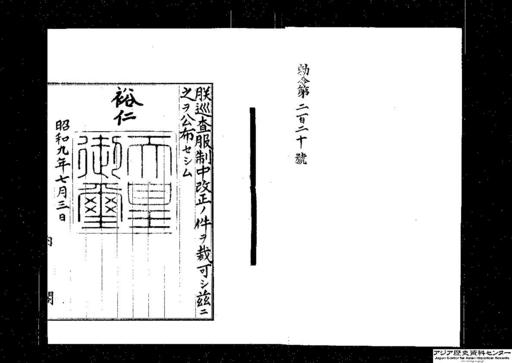 勅令第二百二十號
朕巡査服制中改正ノ件ヲ裁可シ茲ニ
之ヲ公布セシム
裕仁
天皇
御璽
昭和九年七月三日
内閣
アジア歴史資料センター
Japan Center for Asian Historical Records